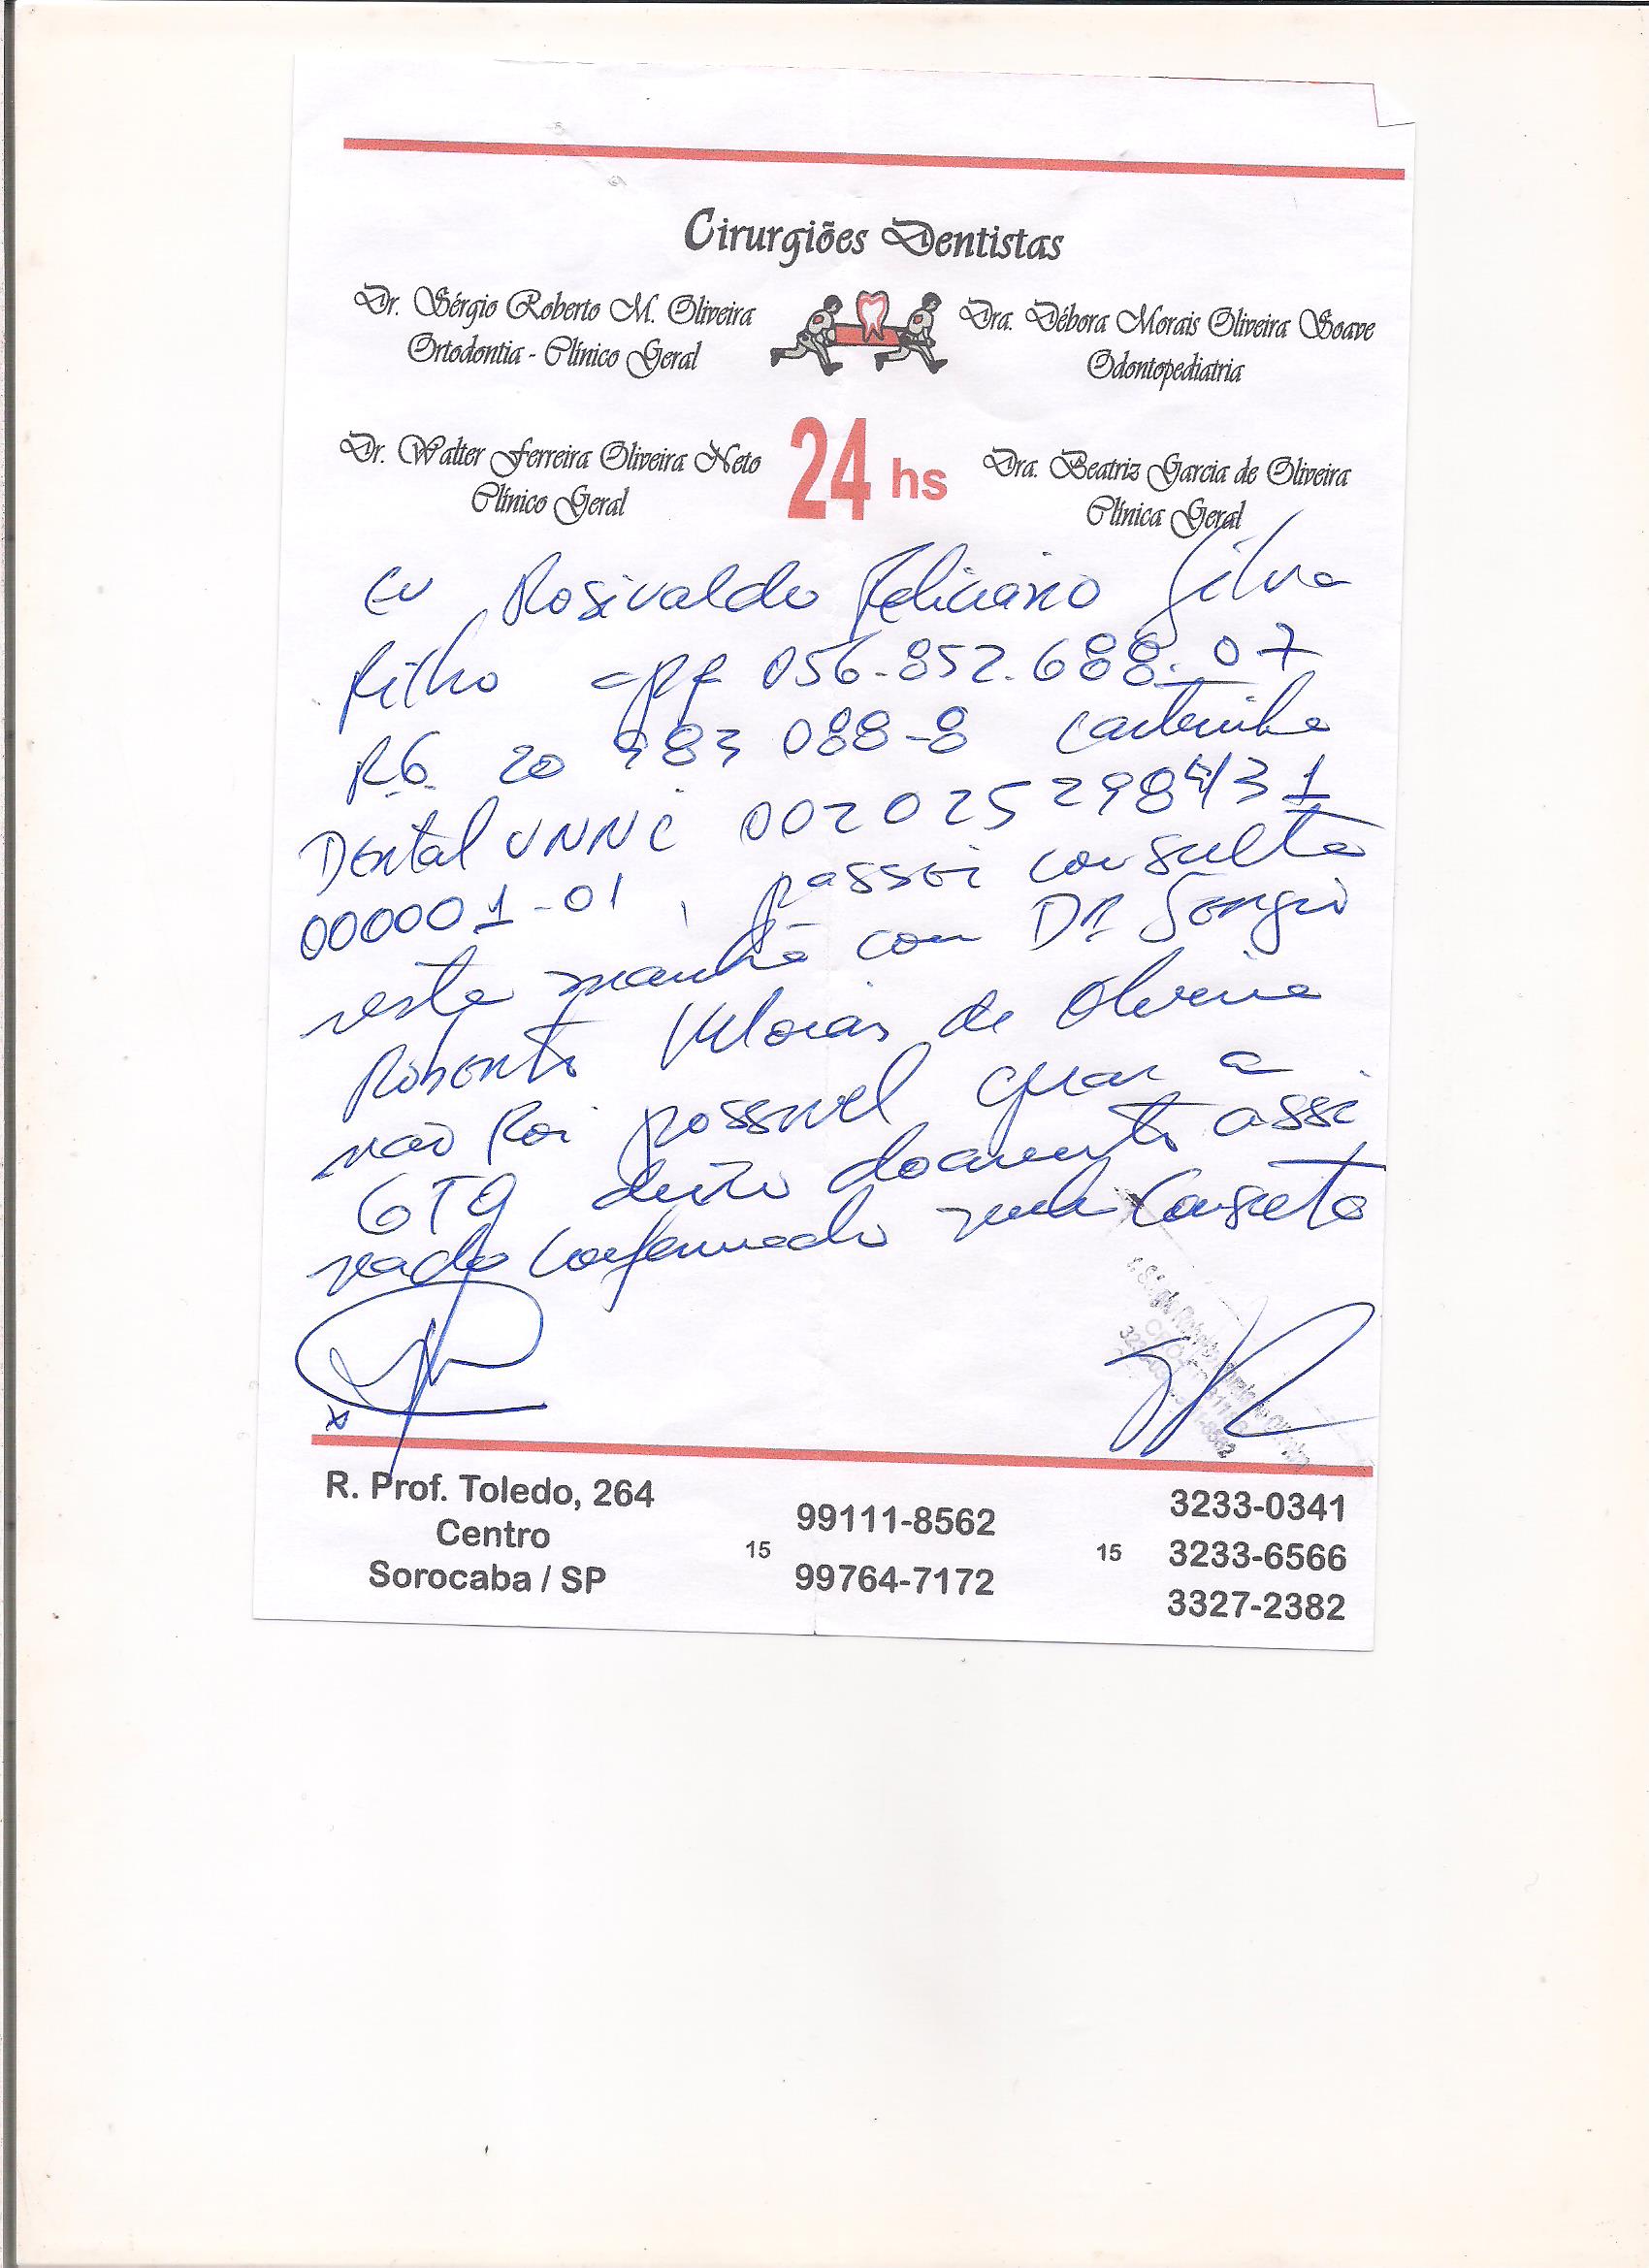 Cirurgiões Dentistas
Dr. Sérgio Roberto M. Oliveira
Ortodontia - Clínico Geral
Dra. Débora Morais Oliveira Soave
Odontopediatria
Dr. Walter Ferreira Oliveira Neto
Clínico Geral
24 hs
Dra. Beatriz Garcia de Oliveira
Clínica Geral
Eu Rosivaldo Feliciano Silva
Filho CPF 056.852.688-07
RG 20 983 088-8 carteirinha
Dental UNNI 002025298431
000001-01, passei consulta
nesta manhã com DR Sergio
Roberto Morais de Oliveira
não foi possivel gerar a
GTO deixo documento assi
nado confirmado minha consulta
R. Prof. Toledo, 264
Centro
Sorocaba / SP
15 99111-8562
99764-7172
15 3233-0341
3233-6566
3327-2382